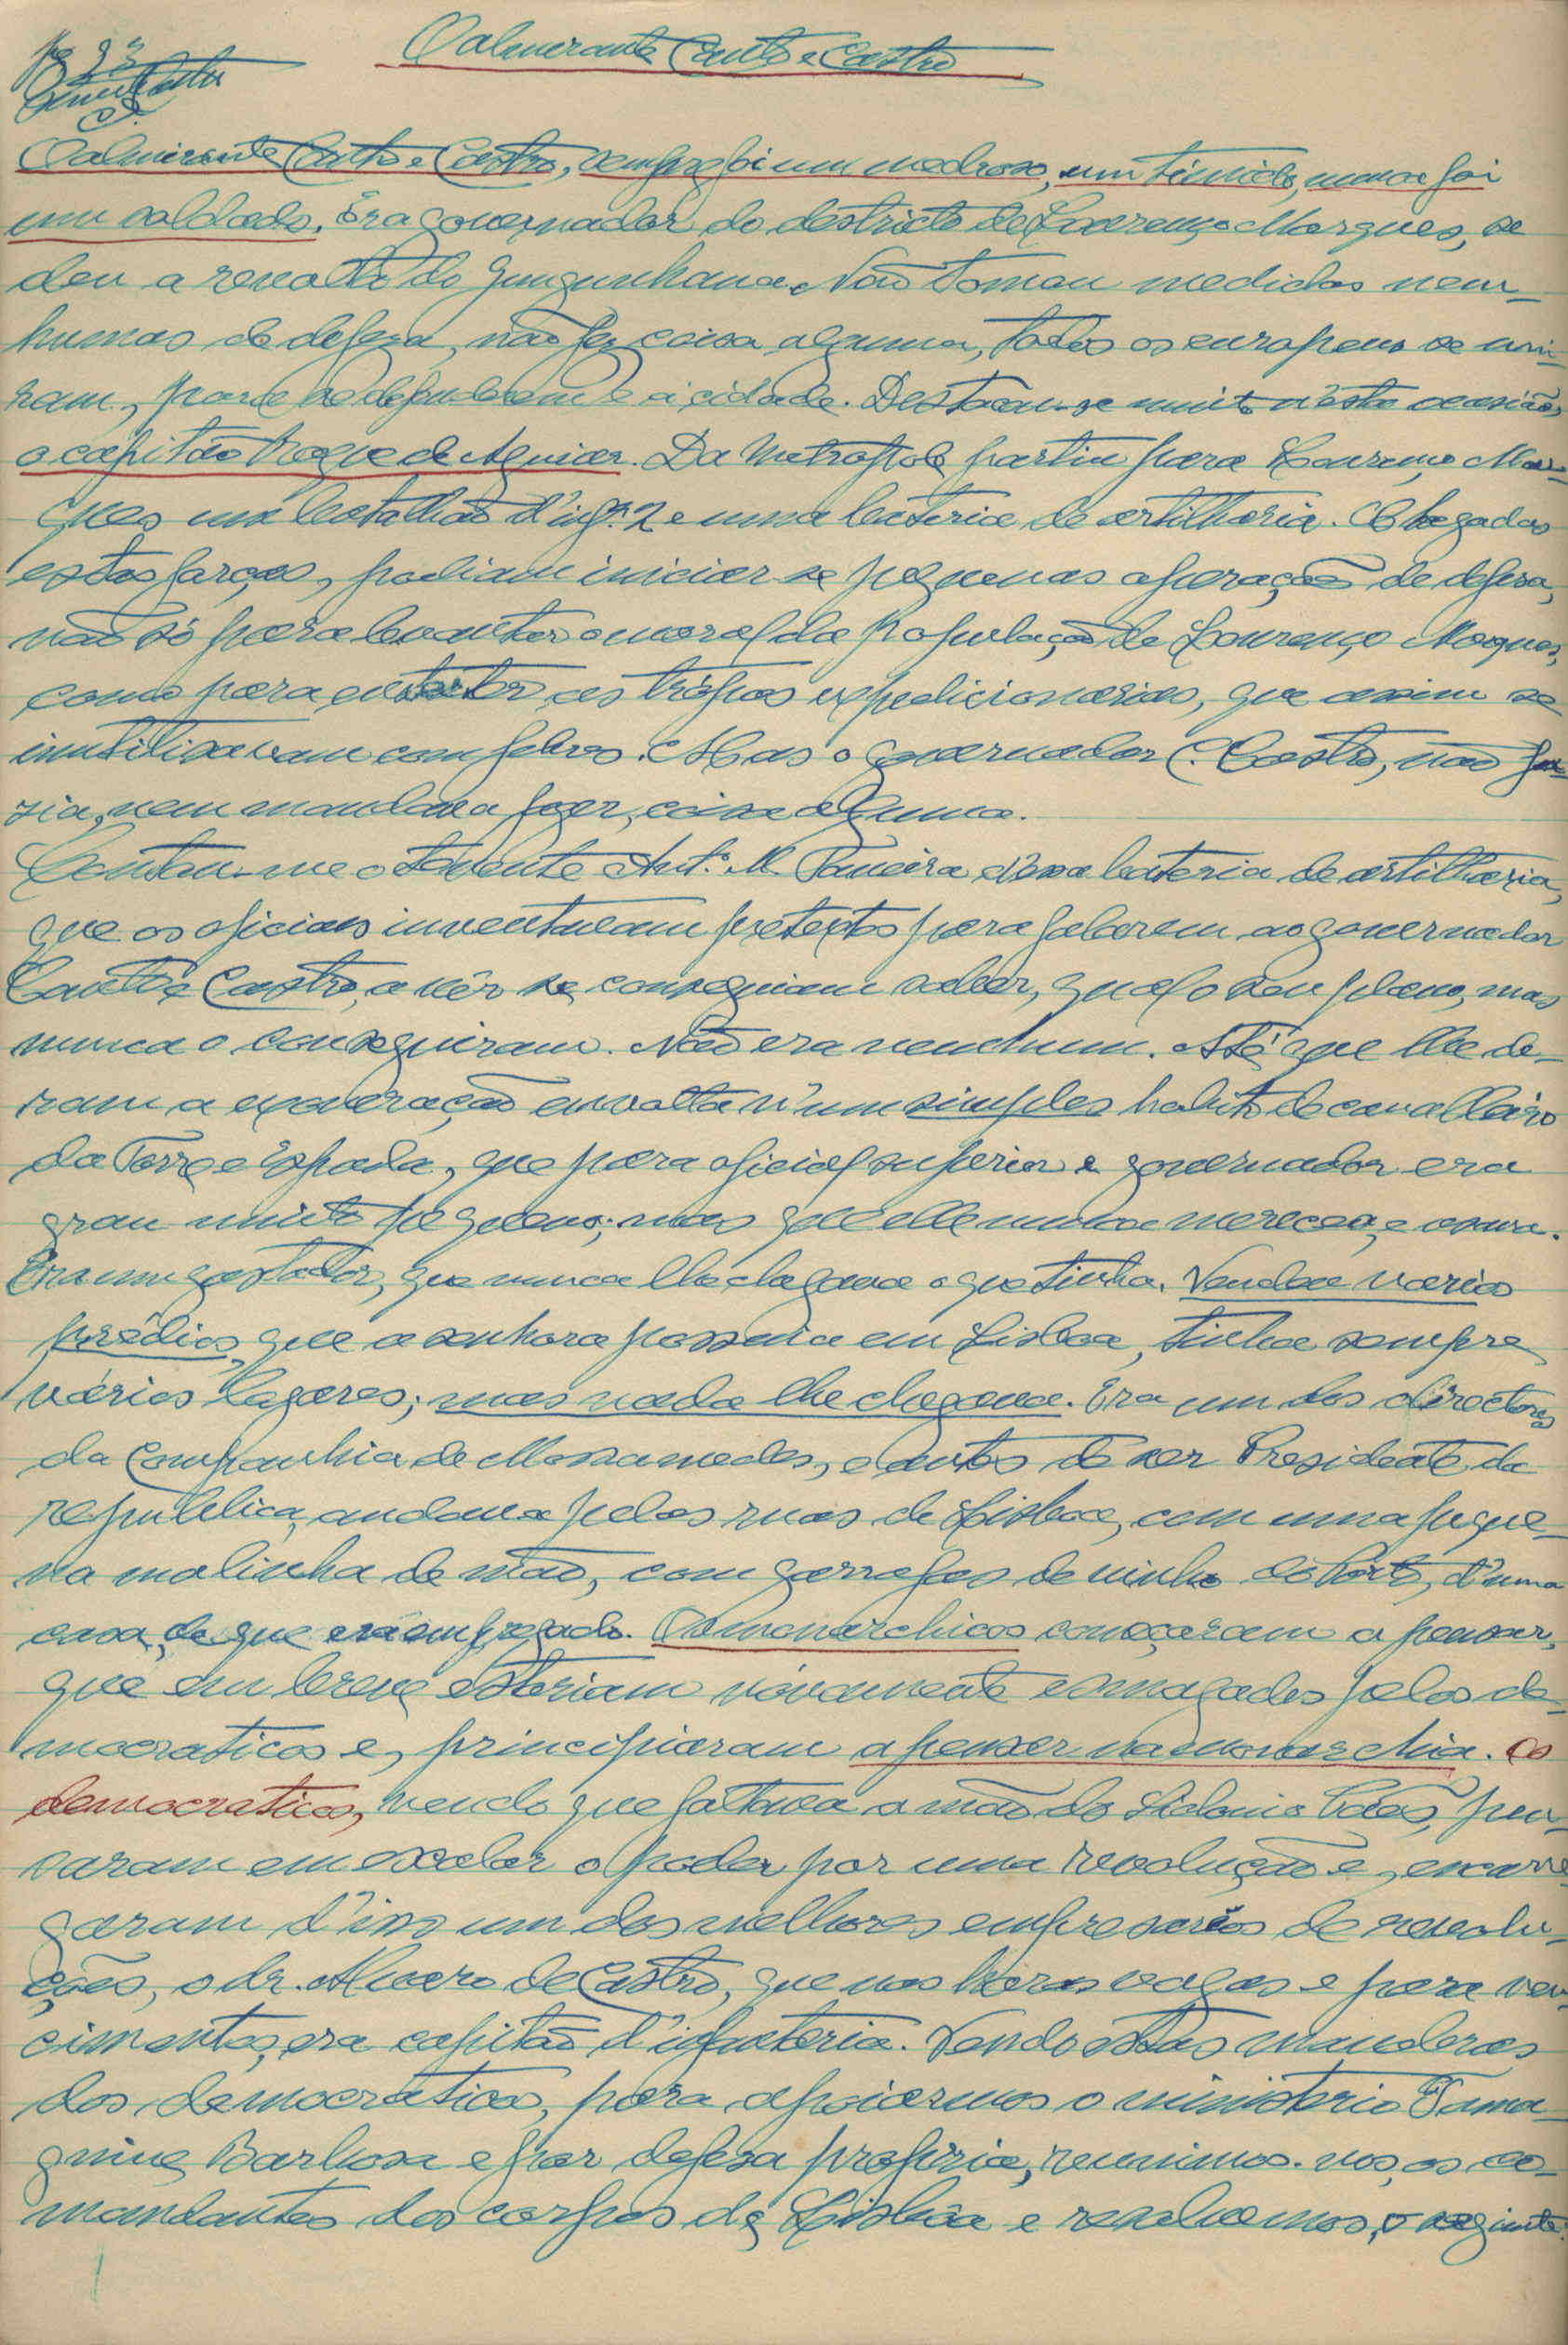 O almirante Canto e Castro
Pg 23
O almirante Canto e Castro, sempre foi um medroso, um timido, nunca foi
um soldado. Era governador do destricto de Lourenço Marques, se
deu a revolta do Gungunhana. Não tomou medidas nem-
humas de defeza, não fez coisa alguma, todos os europeus se uni-
ram, para se defenderem e a cidade. Destacou-se muito n'esta occasião
o capitão Roque de Aguiar. Da Metropole partiu para Lourenço Mar-
ques um batalhão d'inf.ª 2 e uma bateria de artilharia. Chegadas
estas forças, podiam iniciar se pequenas operações de defesa,
não só para levantar o moral da população de Lourenço Marques,
como para as trópas expedicionarias, que assim se
inutilisavam com febres. Mas o governador C. Castro, não fa-
zia, nem mandava fazer, coisa alguma.
Contou-me o tenente Ant.º M. d'essa bateria de artilharia,
que os oficiais inventavam pretextos para falarem ao governador
Canto e Castro, a vêr se conseguiam saber, qual o seu plano, mas
nunca o conseguiram. Não era nenhum. Até que lhe de-
ram a exoneração envolta n'um simples habito de cavalleiro
da Torre e Espada, que para oficial superior e governador era
grau muito pequeno; mas que elle nunca mereceu, e
Era um gastador, que nunca lhe chegava o que tinha. Vendeu varios
prédios, que a senhora possuia em Lisboa, tinha sempre
vários lugares; mas nada lhe chegava. Era um dos directores
da Companhia de Mossamedes, e antes de ser Presidente da
republica, andava pelas ruas de Lisboa, com uma peque-
na malinha de mão, com garrafas de vinho do Porto, d'uma
casa, de que era empregado. Os monarchicos começaram a pensar,
que em breve estariam novamente esmagados pelos de-
mocraticos e, principiaram a pensar na monarchia. Os
democraticos, vendo que faltava a mão do Sidonio Pães, pen-
saram em escalar o poder por uma revolução e, encarre-
garam d'isso um dos melhores empresarios de revolu-
ções, o dr. Alvaro de Castro, que nas horas vagas e para ven-
cimentos, era capitão d'infanteria. Vendo estas manobras
dos democraticos, para apoiarmos o ministerio Tama-
gnini Barbosa e por defesa propria, reunimo-nos, os co-
mandantes dos corpos de Lisbôa e resolvemos, o seguinte: